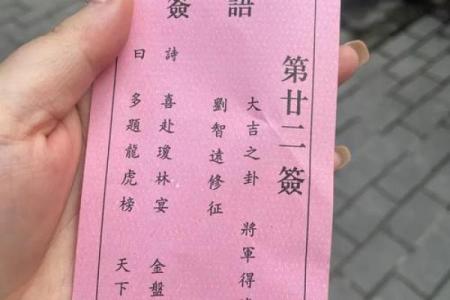 簽語
第廿二簽
大吉之卦 將軍得
劉智遠修征
詩曰
喜赴瓊林宴 金盤
多題龍虎榜 天下